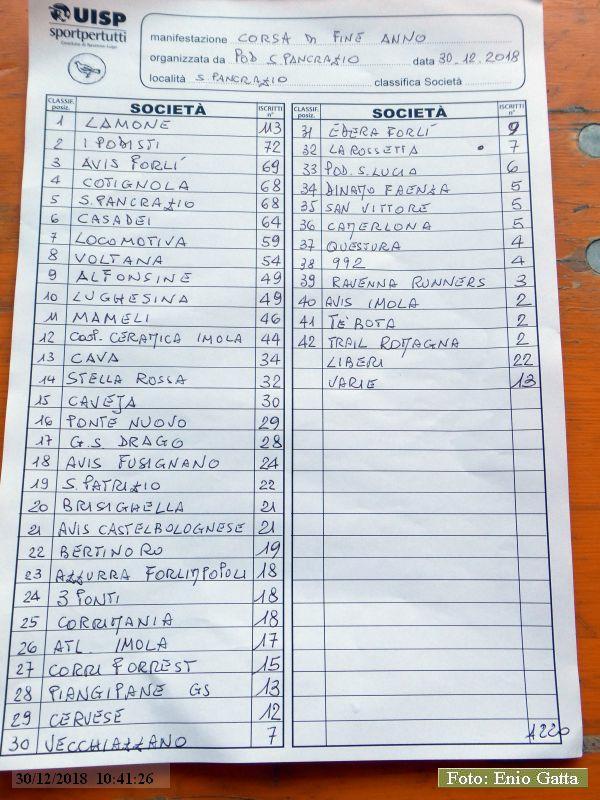 UISP
sportpertutti
manifestazione CORSA DI FINE ANNO
organizzata da POD S.PANCRAZIO data 30.12.2018
località S.PANCRAZIO classifica Società
CLASSIF. posiz. SOCIETÀ ISCRITTI n°
1 LAMONE 113
2 I PODISTI 72
3 AVIS FORLÍ 69
4 COTIGNOLA 68
5 S.PANCRAZIO 68
6 CASADEI 64
7 LOCOMOTIVA 59
8 VOLTANA 54
9 ALFONSINE 49
10 LUGHESINA 49
11 MAMELI 46
12 COOP. CERAMICA IMOLA 44
13 CAVA 34
14 STELLA ROSSA 32
15 CAVEJA 30
16 PONTE NUOVO 29
17 G.S DRAGO 28
18 AVIS FUSIGNANO 24
19 S.PATRIZIO 22
20 BRISIGHELLA 21
21 AVIS CASTELBOLOGNESE 21
22 BERTINORO 19
23 AZZURRA FORLIMPOPOLI 18
24 3 PONTI 18
25 CORRIMANIA 18
26 ATL. IMOLA 17
27 CORRI FORREST 15
28 PIANGIPANE GS 13
29 CERVESE 12
30 VECCHIAZZANO 7
CLASSIF. posiz. SOCIETÀ ISCRITTI n°
31 EDERA FORLÍ 9
32 LA ROSSETTA 7
33 POD. S. LUCIA 6
34 DINAMO FAENZA 5
35 SAN VITTORE 5
36 CAMERLONA 5
37 QUESTURA 4
38 992 4
39 RAVENNA RUNNERS 3
40 AVIS IMOLA 2
41 TE' BOTA 2
42 TRAIL ROMAGNA 2
LIBERI 22
VARIE 13
1220
30/12/2018 10:41:26
Foto: Enio Gatta